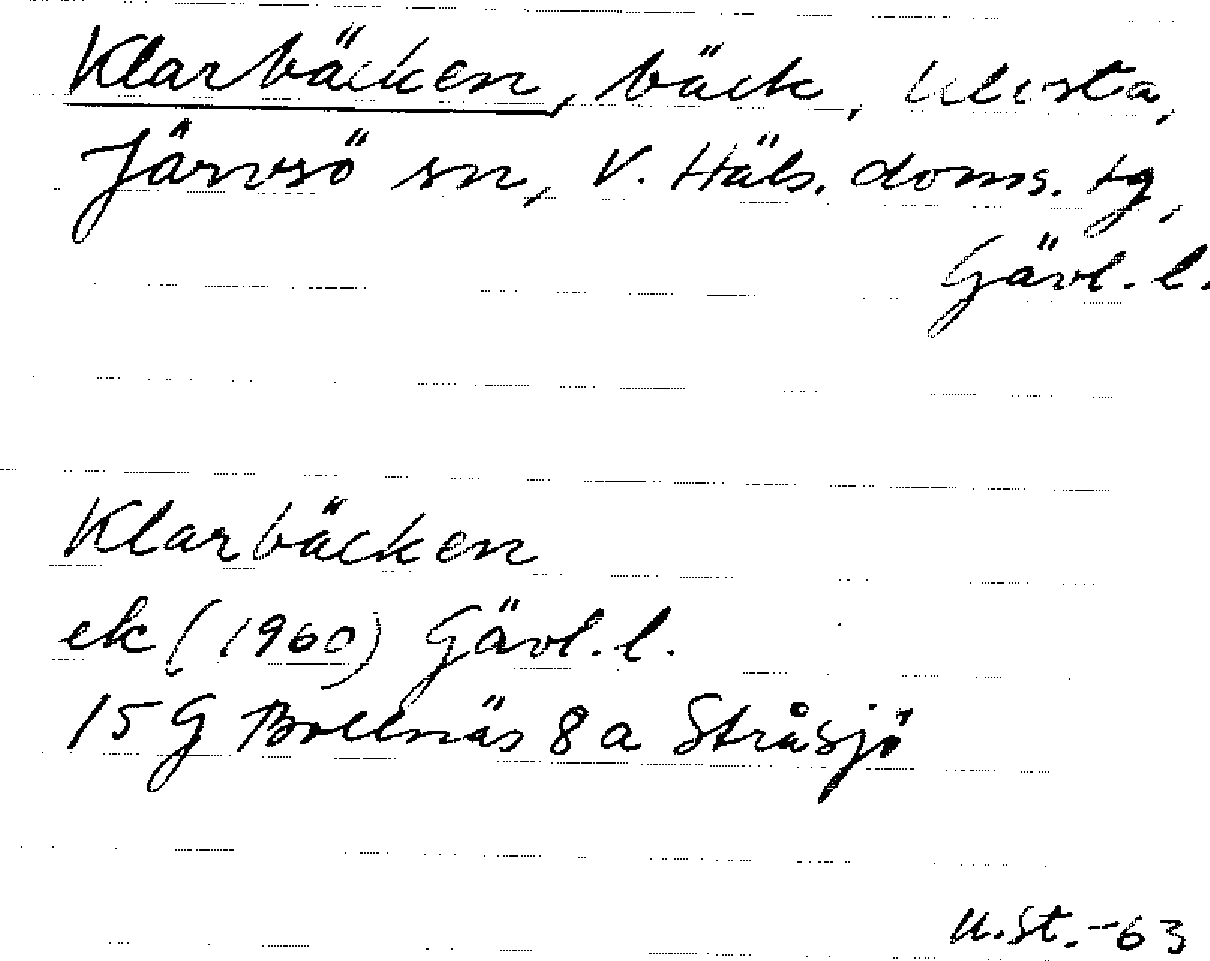 Klarbäcken, bäck, Ulvsta,
Järvsö sn, V. Häls. doms. tg,
Gävl. l.
Klarbäcken
ek (1960) Gävl. l.
15 G Bollnäs 8 a Stråsjö
U.St.-63